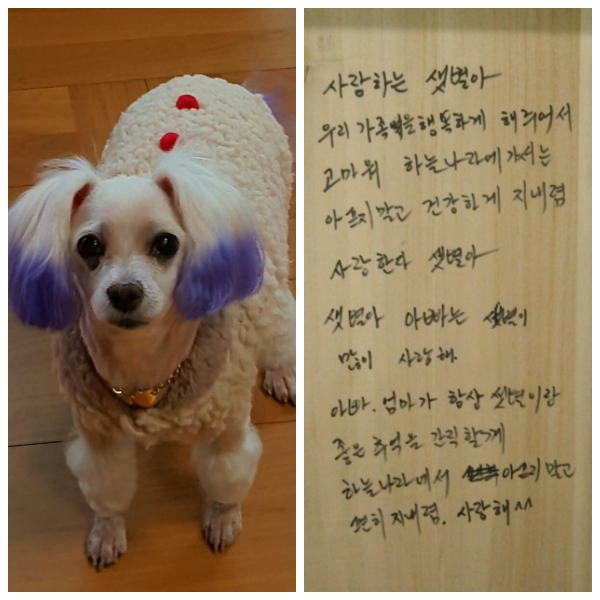 사랑하는 샛별아
우리 가족을 행복하게 해줘어서
고마워 하늘나라에 가서는
아프지말고 건강하게 지내렴
사랑한다 샛별아
샛별아 아빠는 샛별이
많이 사랑해
아빠. 엄마가 항상 샛별이랑
좋은 추억을 간직할게
하늘나라에서 아프지말고
편히 지내렴. 사랑해^^